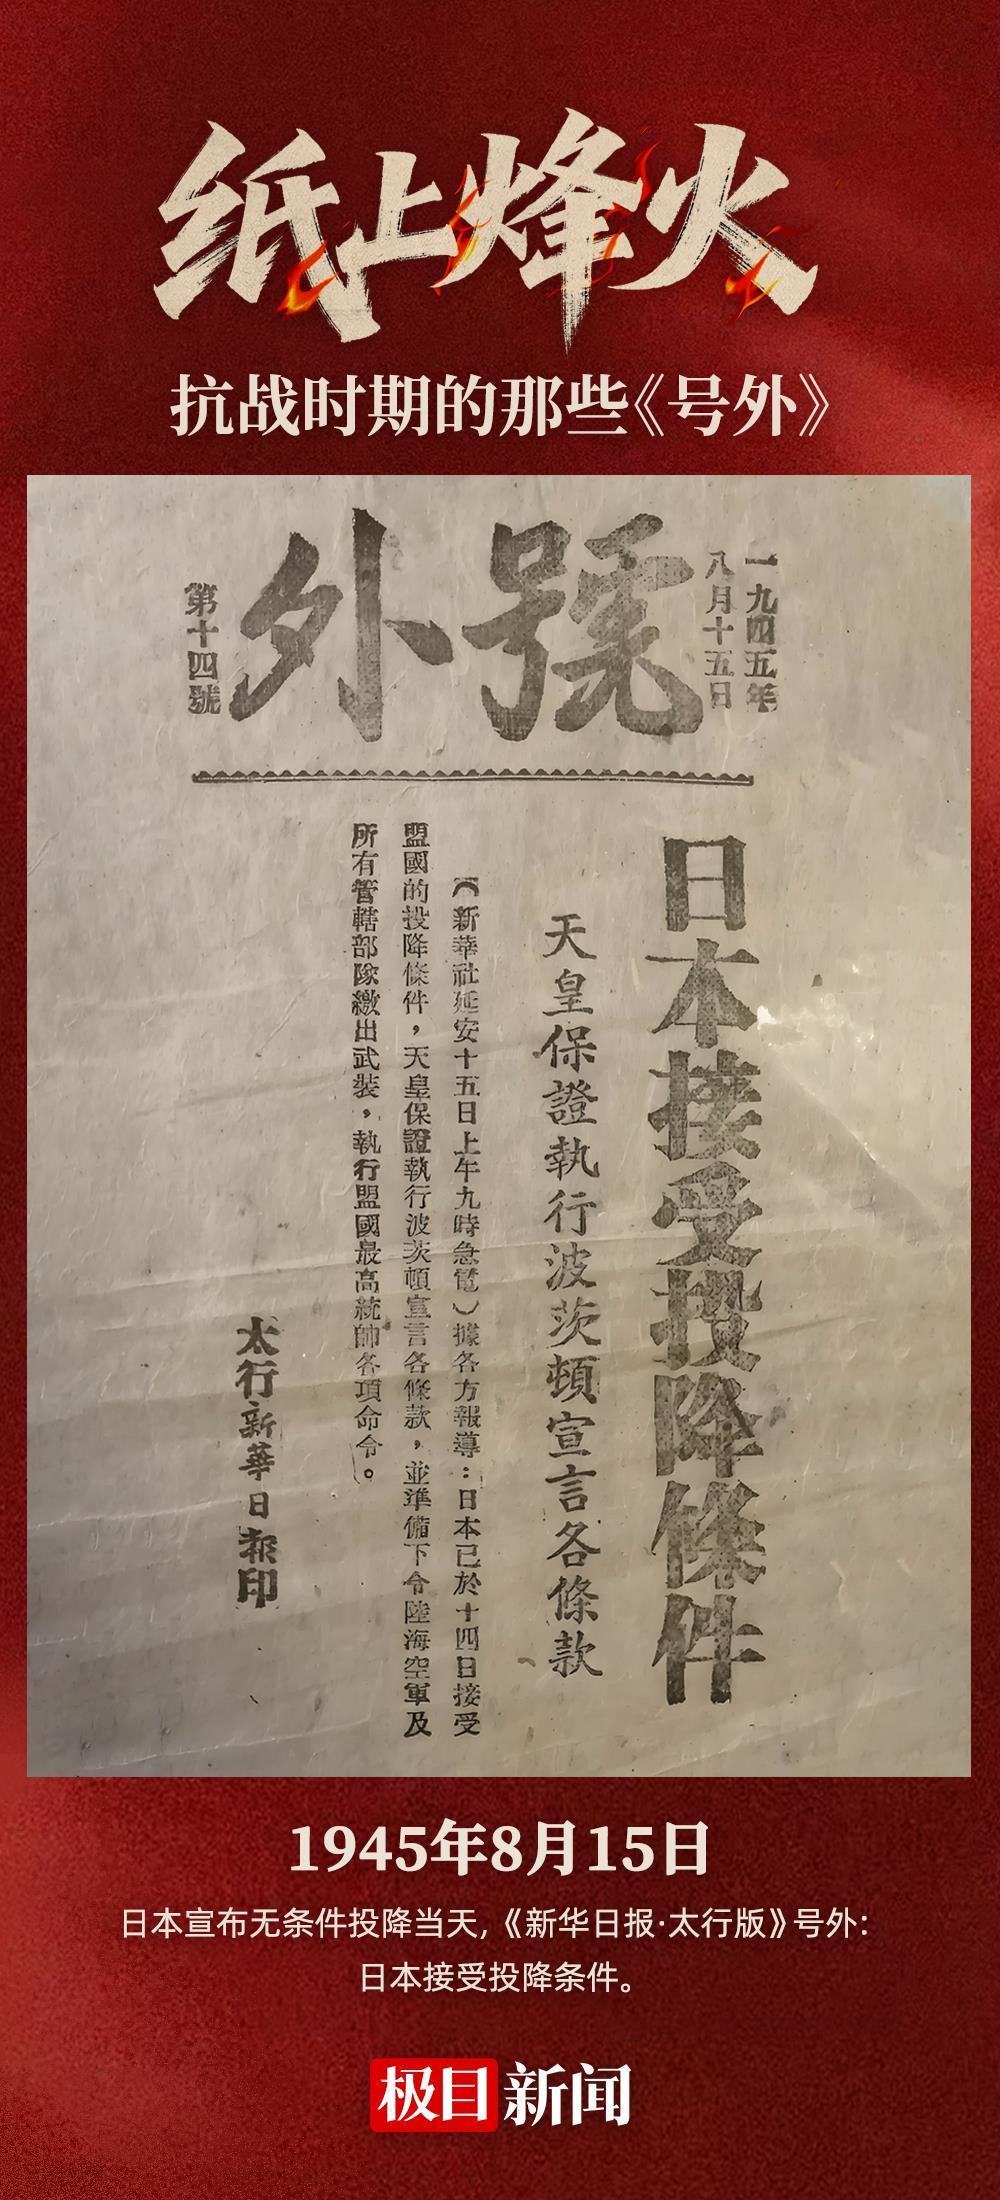 纸上烽火
抗战时期的那些《号外》
號外
一九四五年
八月十五日
第十四號
日本接受投降條件
天皇保證執行波茨頓宣言各條款
（新華社延安十五日上午九時急電）據各方報導：日本已於十四日接受
盟國的投降條件，天皇保證執行波茨頓宣言各條款，並準備下令陸海空軍及
所有管轄部隊繳出武裝，執行盟國最高統帥各項命令。
太行新華日報印
1945年8月15日
日本宣布无条件投降当天，《新华日报·太行版》号外：
日本接受投降条件。
极目新闻